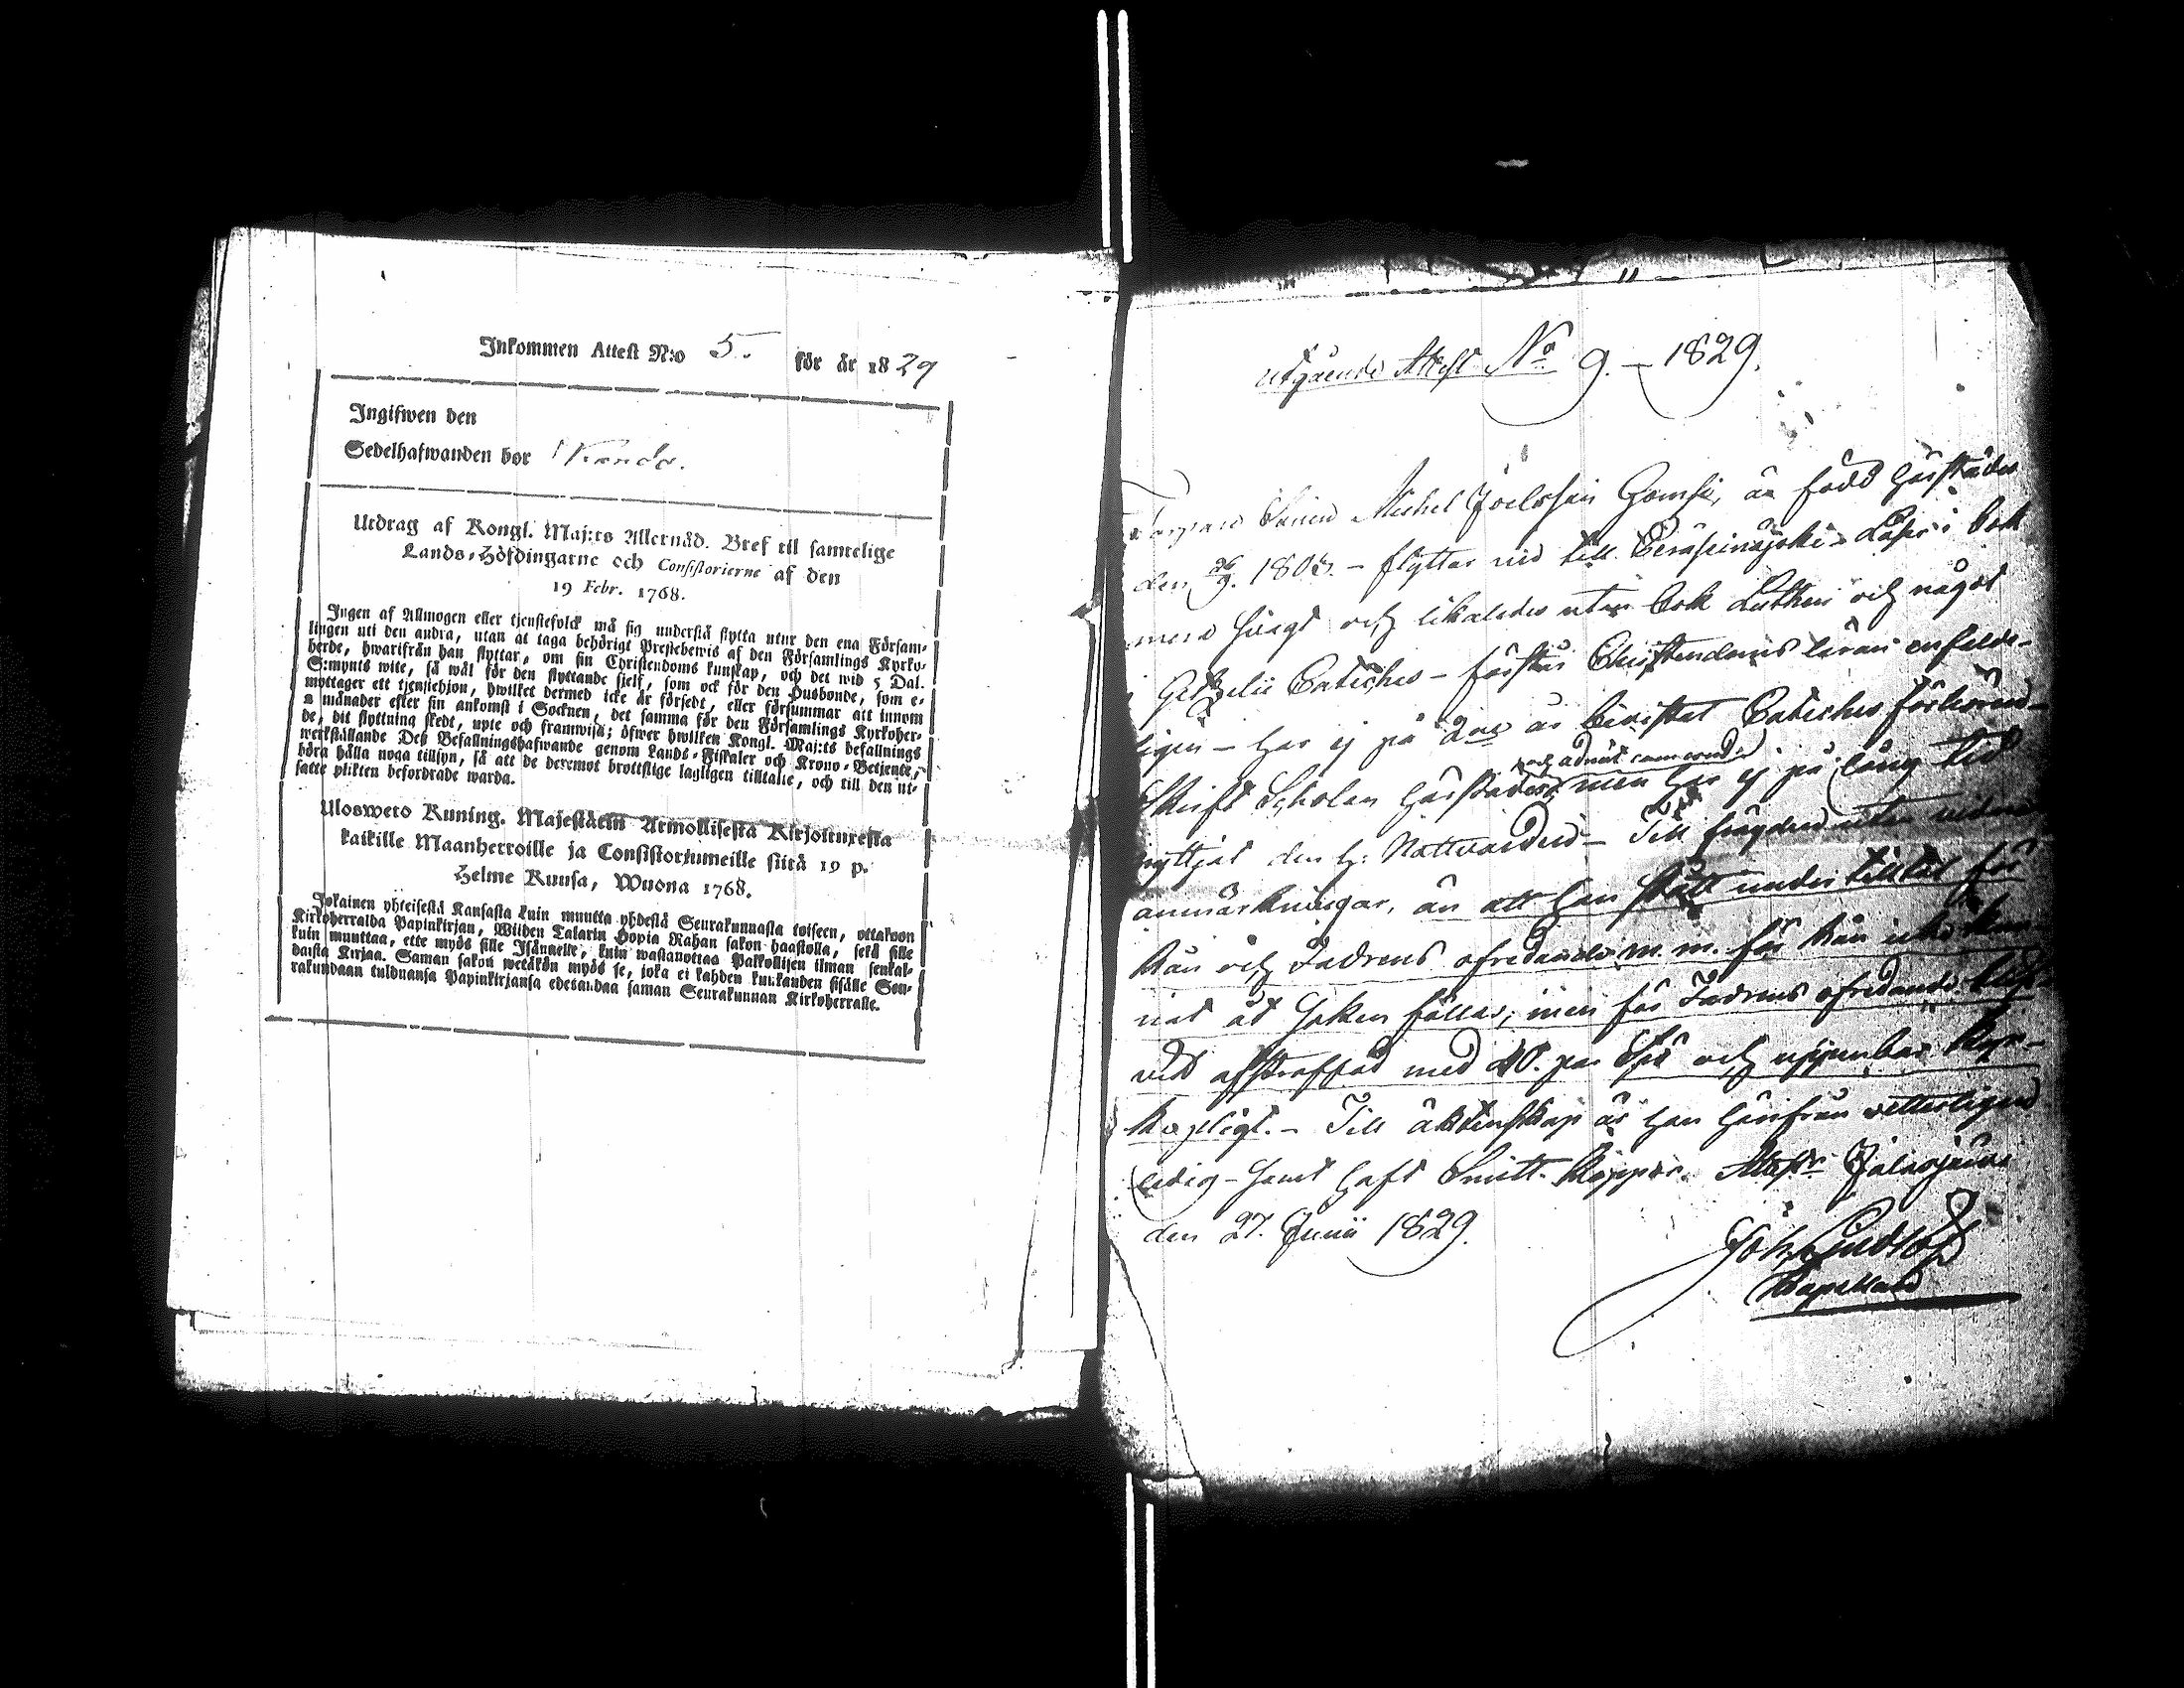 Inkommen Attest N:o 5. för år 1829
Ingifwen den
Sedelhafwanden bor
Utdrag af Kongl. Maj:ts Allernåd. Bref til samtelige
Lands-Höfdingarne och Consistorierne af den
19 Febr. 1768.
Ingen af Allmogen eller tjenstefolck må sig understå flytta utur den ena Församlingen
lingen uti den andra, utan at taga behörigt Prestebewis af den Församlings Kyrko-
herde, hwarifrån han flyttar, om sin Christendoms kunskap, och det wid 5 Dal.
S:mynts wite, så wäl för den flyttande sjelf, som ock för den Husbonde, som e-
mottager ett tjenstehjon, hwilket dermed icke är försedt, eller försummar att innom
2 månader efter sin ankomst i Socknen, det samma för den Församlings Kyrkoher-
de, dit flyttning skedt, upte och framwisa; öfwer hwilken Kongl. Maj:ts befallnings
werkställande Deß Befallningshafwande genom Lands-Fiskaler och Krono-Betjente,
böra hålla noga tillsyn, så att de deremot brottslige lagligen tilltalte, och till den ut-
satte plikten befordrade warda.
Ulosweto Kuning. Majestätin Armollisesta Kirjoituxesta
kaikille Maanherroille ja Consistoriumeille siitä 19 p.
Helme Kuusa, Wuona 1768.
Jokainen yhteisestä Kansasta kuin muutta yhdestä Seurakunnasta toiseen, ottakoon
Kirkoherralda Papinkirjan, Wiiden Talarin Hopia Rahan sakon haastolla, sekä sille
kuin muuttaa, ette myös sille Isännelle, kuin wastanottaa Palkollisen ilman senkal-
daista Kirjaa. Saman sakon wetäkön myös se, joka ei kahden kuukauden sisälle Seu-
rakundaan tulduansa Papinkirjansa edesandaa saman Seurakunnan Kirkoherralle.
Utgående Attest No 9. – 1829.
Sonen Michel Joelsson är född härstädes
den 26/9 180 – flyttar nid till Peräseinäjoki – Läser i bok
mera hvargt och likaledes utur bok Lutheri och något
Gezelii Cateches – förstår Christendoms läran enfalde-
ligen – har ej på 2ne år bevistat Cateches förhören
Skrift Scholan härstädes men har ej på lång tid
nyttjat den h: Nattvarden – Till frägden utan
anmärkningar, än att han stått under tilltal för
rån och Fadrens ofredande m. m. för rån icke kun-
nat åt saken fällas; men för Fadrens ofredande
vist afstraffad med 40. par Spö och uppenbar kyr-
kopligt. – Till äktenskap är han härifrån vetterligen
ledig – samt haft Smitt-koppor. Attest: Jalasjärvi
den 27. Junii 1829.
Joh. Lindlöf
Kapellan